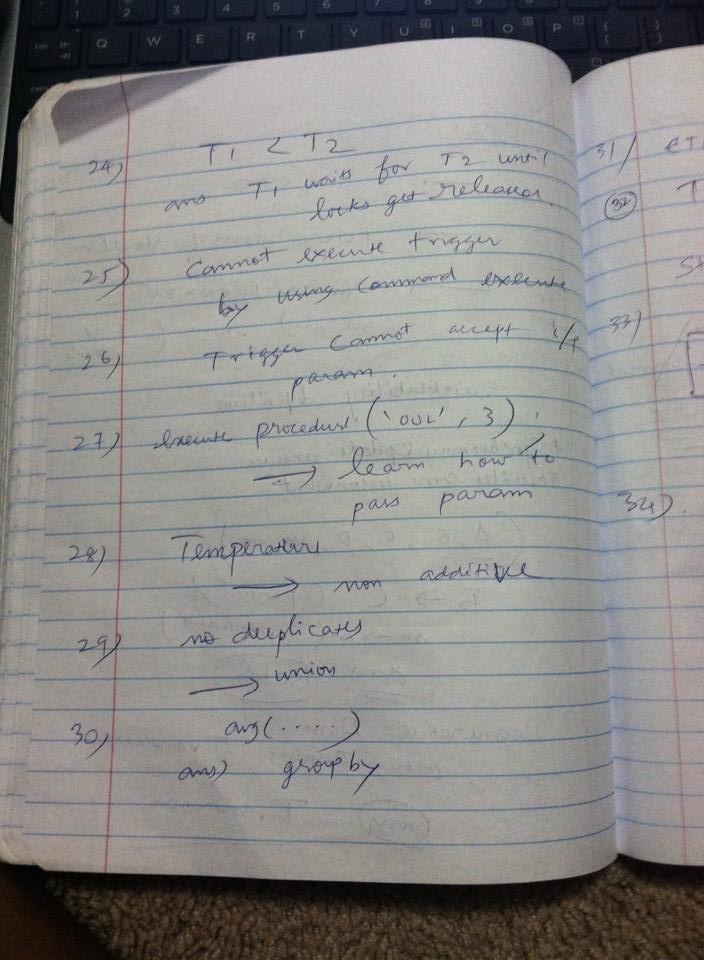 24) T1 < T2
ans T1 waits for T2 until
locks get released.
25) Cannot execute trigger
by using Command execute
26) Trigger Cannot accept i/p
param.
27) execute procedure ('001', 3);
→ learn how to
pass param
28) Temperature
→ non additive
29) no duplicates
→ union
30) avg(.....)
ans) group by
31)
32
33)
34).